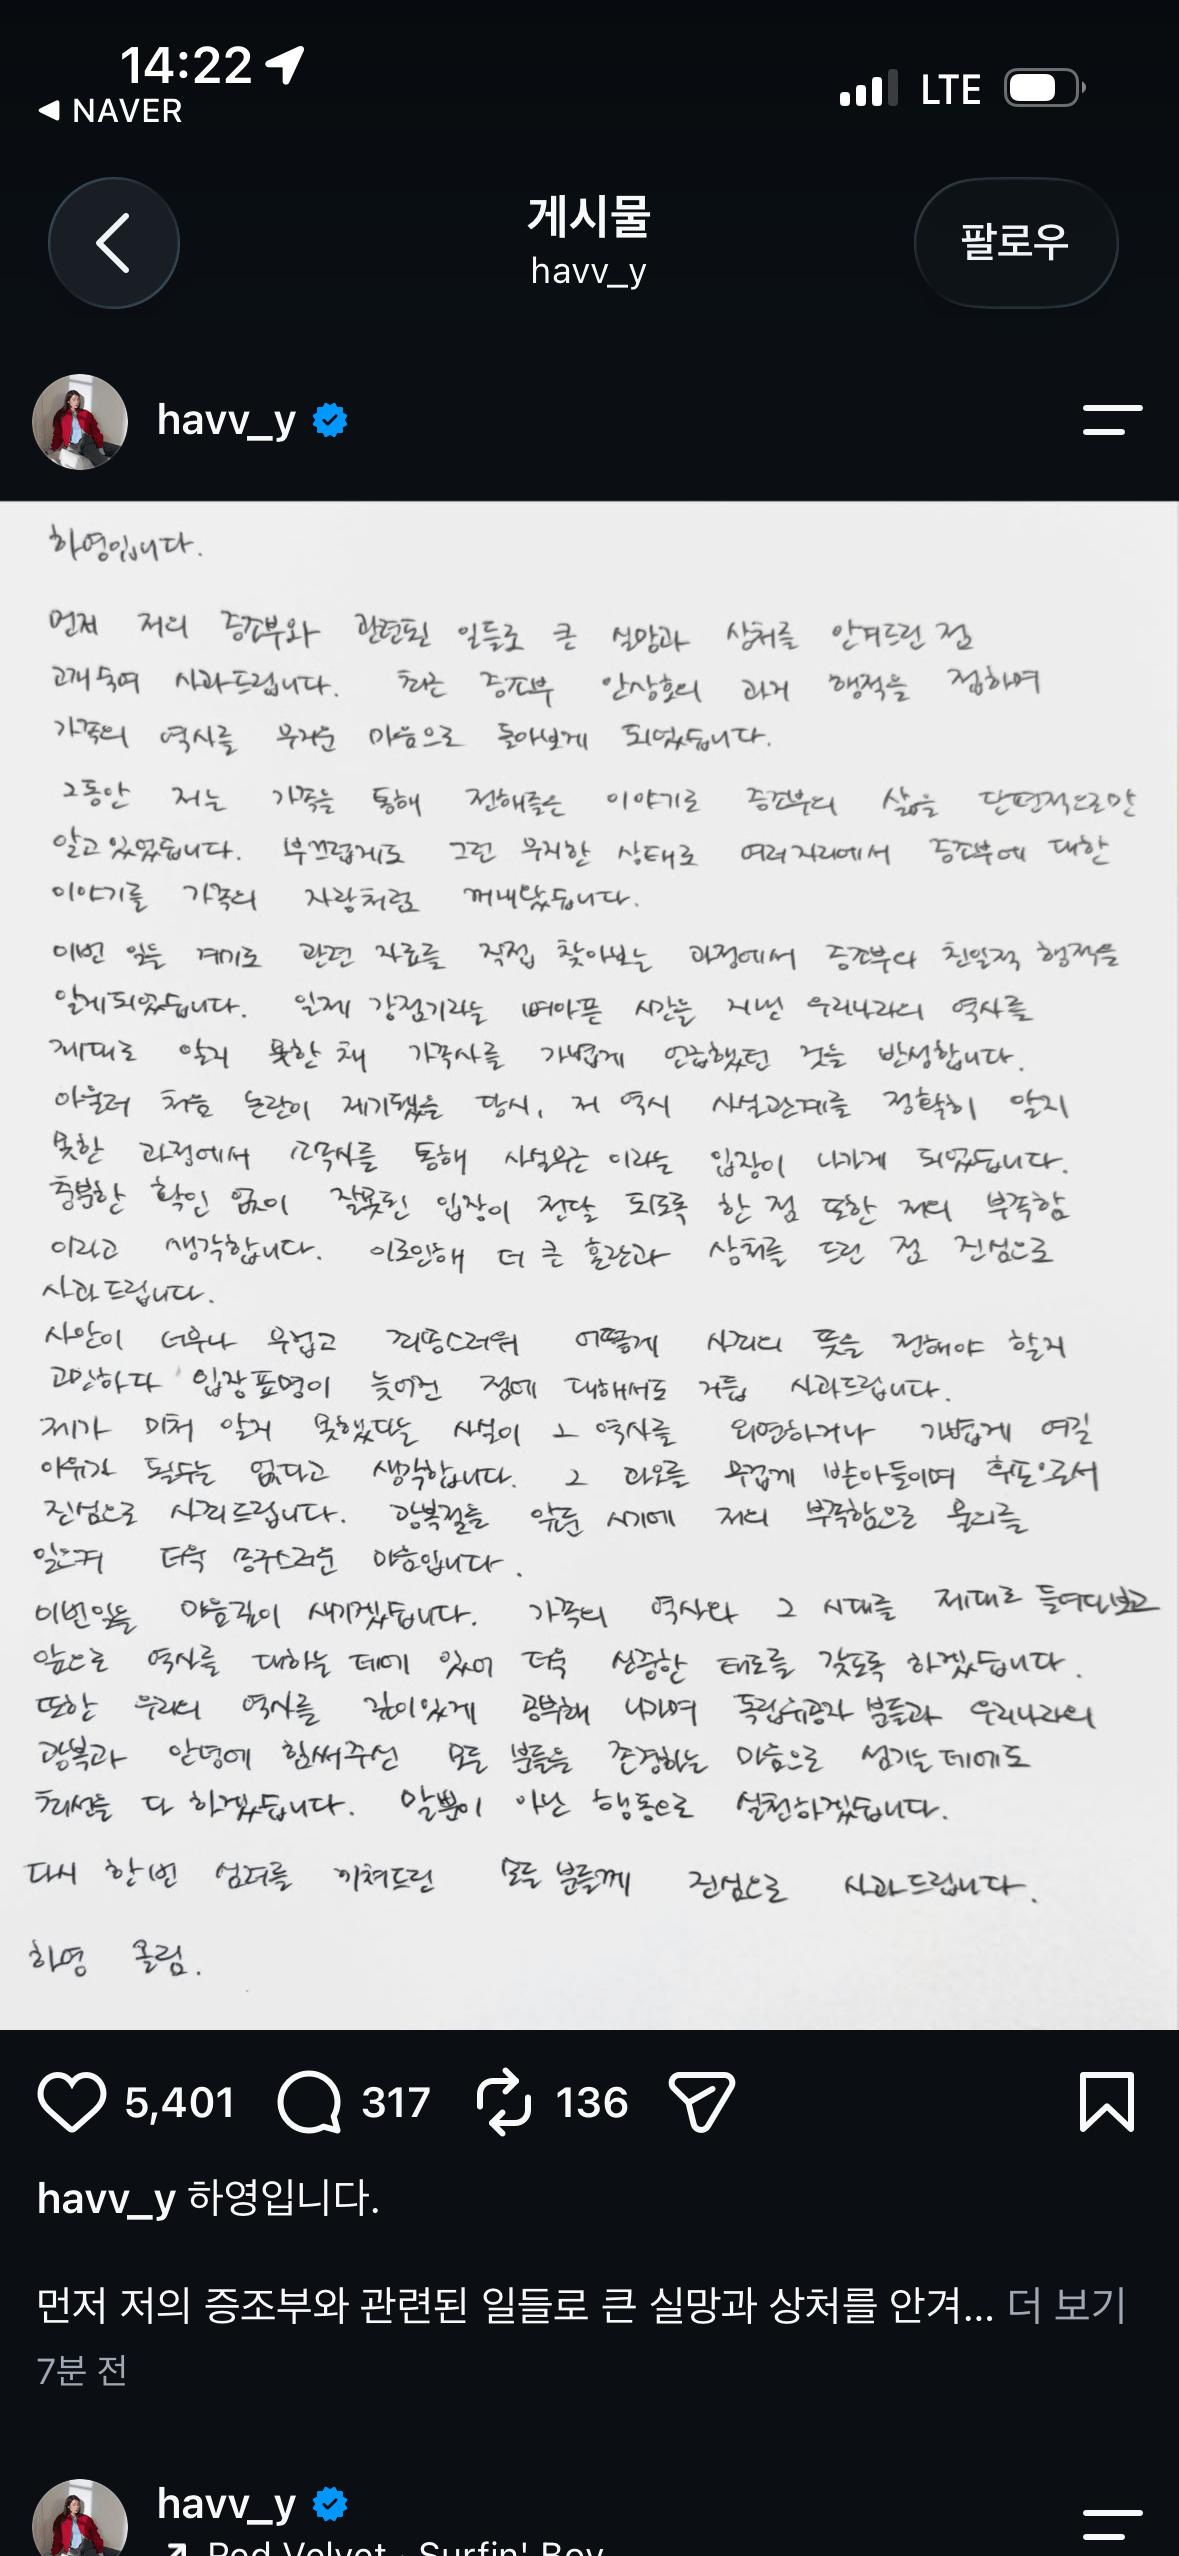 14:22
LTE
NAVER
게시물
havv_y
팔로우
havv_y
하영입니다.
먼저 저의 증조부와 관련된 일들로 큰 실망과 상처를 안겨드린 점
고개숙여 사과드립니다. 최근 증조부 안상호의 과거 행적을 접하며
가족의 역사를 무거운 마음으로 돌아보게 되었습니다.
그동안 저는 가족을 통해 전해들은 이야기로 증조부의 삶을 단편적으로만
알고 있었습니다. 부끄럽게도 그런 무지한 상태로 여러 자리에서 증조부에 대한
이야기를 가족의 자랑처럼 꺼내왔습니다.
이번 일을 계기로 관련 자료를 직접 찾아보는 과정에서 증조부의 친일적 행적을
알게 되었습니다. 일제 강점기라는 뼈아픈 시간을 지낸 우리나라의 역사를
제대로 알지 못한 채 가족사를 가볍게 언급했던 것을 반성합니다.
아울러 처음 논란이 제기됐을 당시, 저 역시 사실관계를 정확히 알지
못한 과정에서 소속사를 통해 사실무근 이라는 입장이 나가게 되었습니다.
충분한 확인 없이 잘못된 입장이 전달 되도록 한 점 또한 저의 부족함
이라고 생각합니다. 이로인해 더 큰 혼란과 상처를 드린 점 진심으로
사과드립니다.
사안이 너무나 무겁고 죄송스러워 어떻게 사죄의 뜻을 전해야 할지
고민하다 입장표명이 늦어진 점에 대해서도 거듭 사과드립니다.
제가 미처 알지 못했다는 사실이 그 역사를 외면하거나 가볍게 여길
이유가 될수는 없다고 생각합니다. 그 과오를 무겁게 받아들이며 후손으로서
진심으로 사죄드립니다. 광복절을 앞둔 시기에 저의 부족함으로 물의를
일으켜 더욱 송구스러운 마음입니다.
이번일을 마음깊이 새기겠습니다. 가족의 역사와 그 시대를 제대로 들여다보고
앞으로 역사를 대하는 데에 있어 더욱 신중한 태도를 갖도록 하겠습니다.
또한 우리의 역사를 깊이있게 공부해 나가며 독립유공자 분들과 우리나라의
광복과 안녕에 힘써주신 모든 분들을 존경하는 마음으로 섬기는 데에도
최선을 다 하겠습니다. 말뿐이 아닌 행동으로 실천하겠습니다.
다시 한번 심려를 끼쳐드린 모든 분들께 진심으로 사과드립니다.
하영 올림.
5,401 317 136
havv_y 하영입니다.
먼저 저의 증조부와 관련된 일들로 큰 실망과 상처를 안겨... 더 보기
7분 전
havv_y
Red Velvet · Surfin' Boy